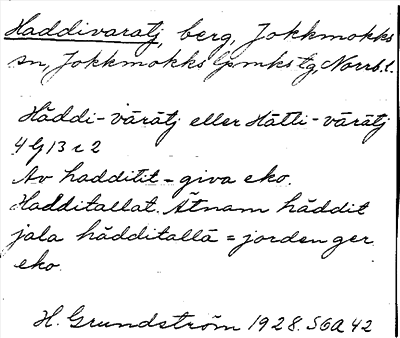 Haddivaratj, berg, Jokkmokks
sn, Jokkmokks lpmks tg, Norrb. l.
Häddi-vārātj eller Hātti-vārātj
4 G 13 c 2
Av hadditit = giva eko.
Hadditallat. Ätnam häddit
jala hädditallā = jorden ger
eko.
H. Grundström 1928. SOA 42